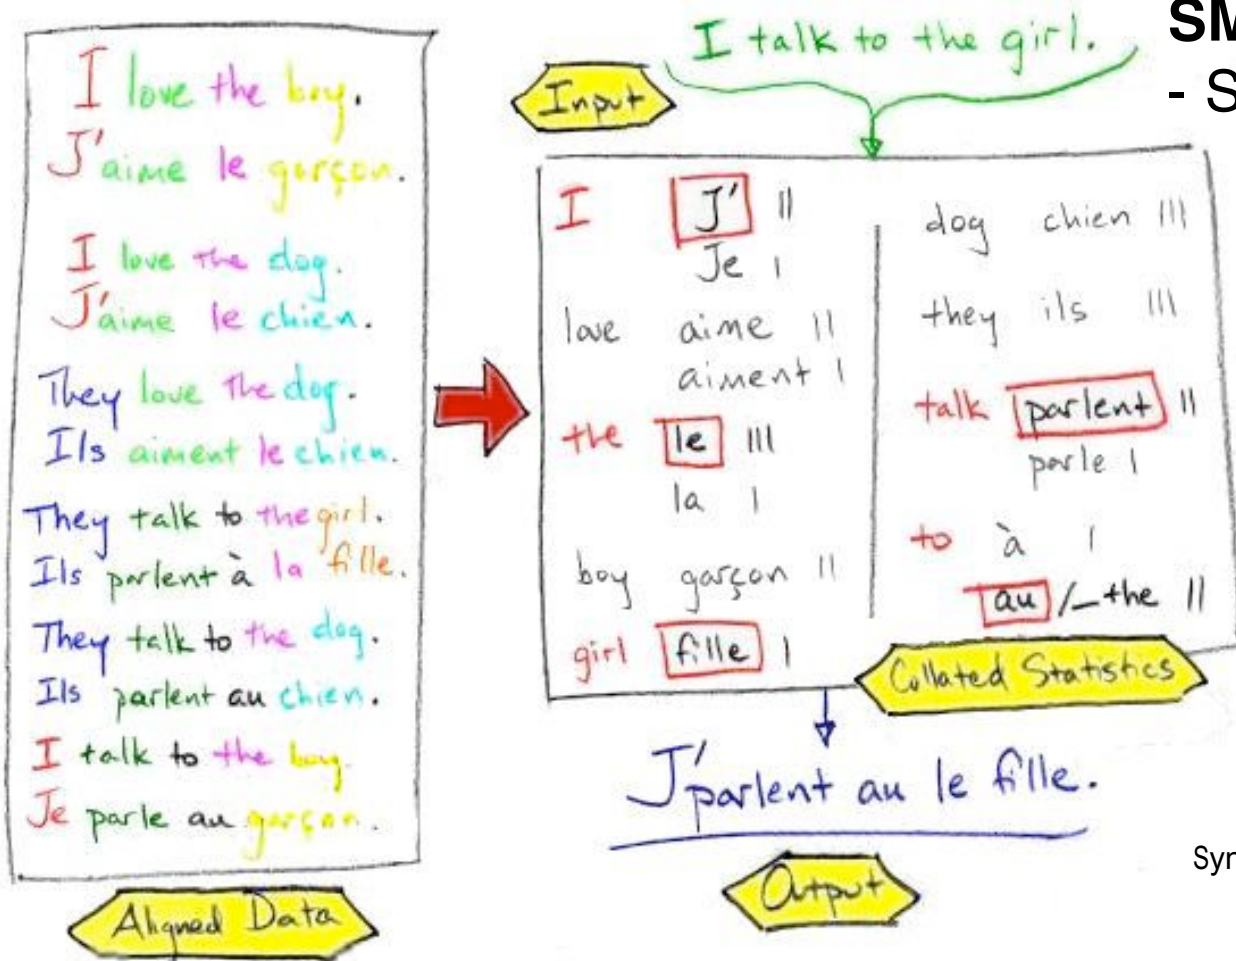 I love the boy.
J'aime le garçon.
I love the dog.
J'aime le chien.
They love the dog.
Ils aiment le chien.
They talk to the girl.
Ils parlent à la fille.
They talk to the dog.
Ils parlent au chien.
I talk to the boy.
Je parle au garçon.
Aligned Data
I talk to the girl.
Input
I J' ||
Je |
love aime ||
aiment |
the le |||
la |
boy garçon ||
girl fille |
dog chien |||
they ils |||
talk parlent ||
parle |
to à |
au /_the ||
Collated Statistics
J'parlent au le fille.
Output
SM
- S
Syr